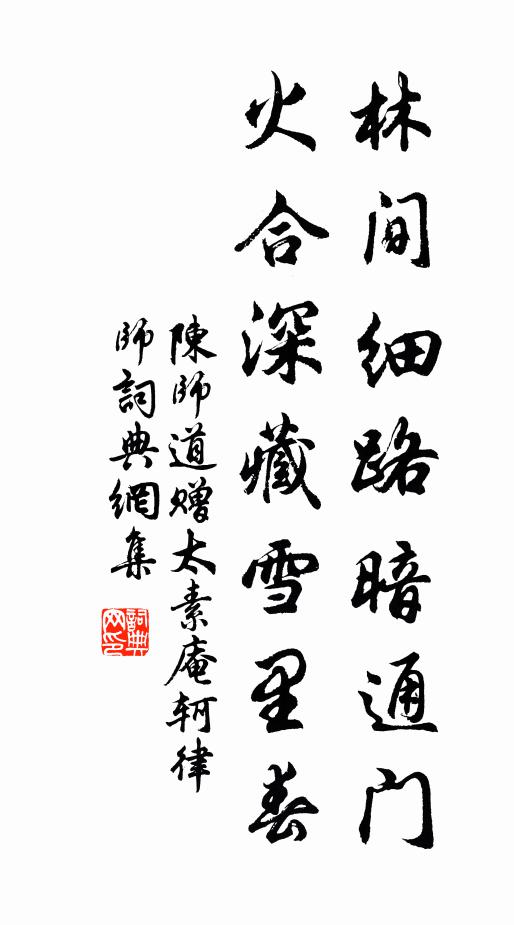 林間细路暗通门
火合深藏雪里春
陳師道赠太素庵軻律
師詞典網集
詞典
网印